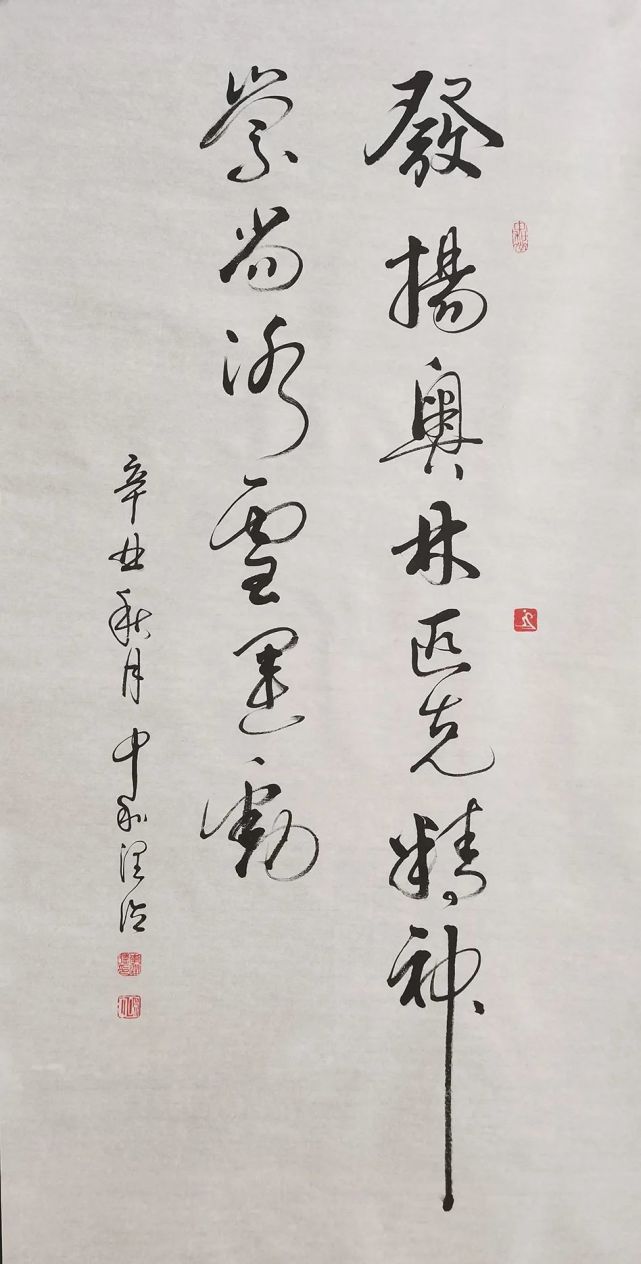 發揚奧林匹克精神
崇尚冰雪運動
辛丑秋月中和